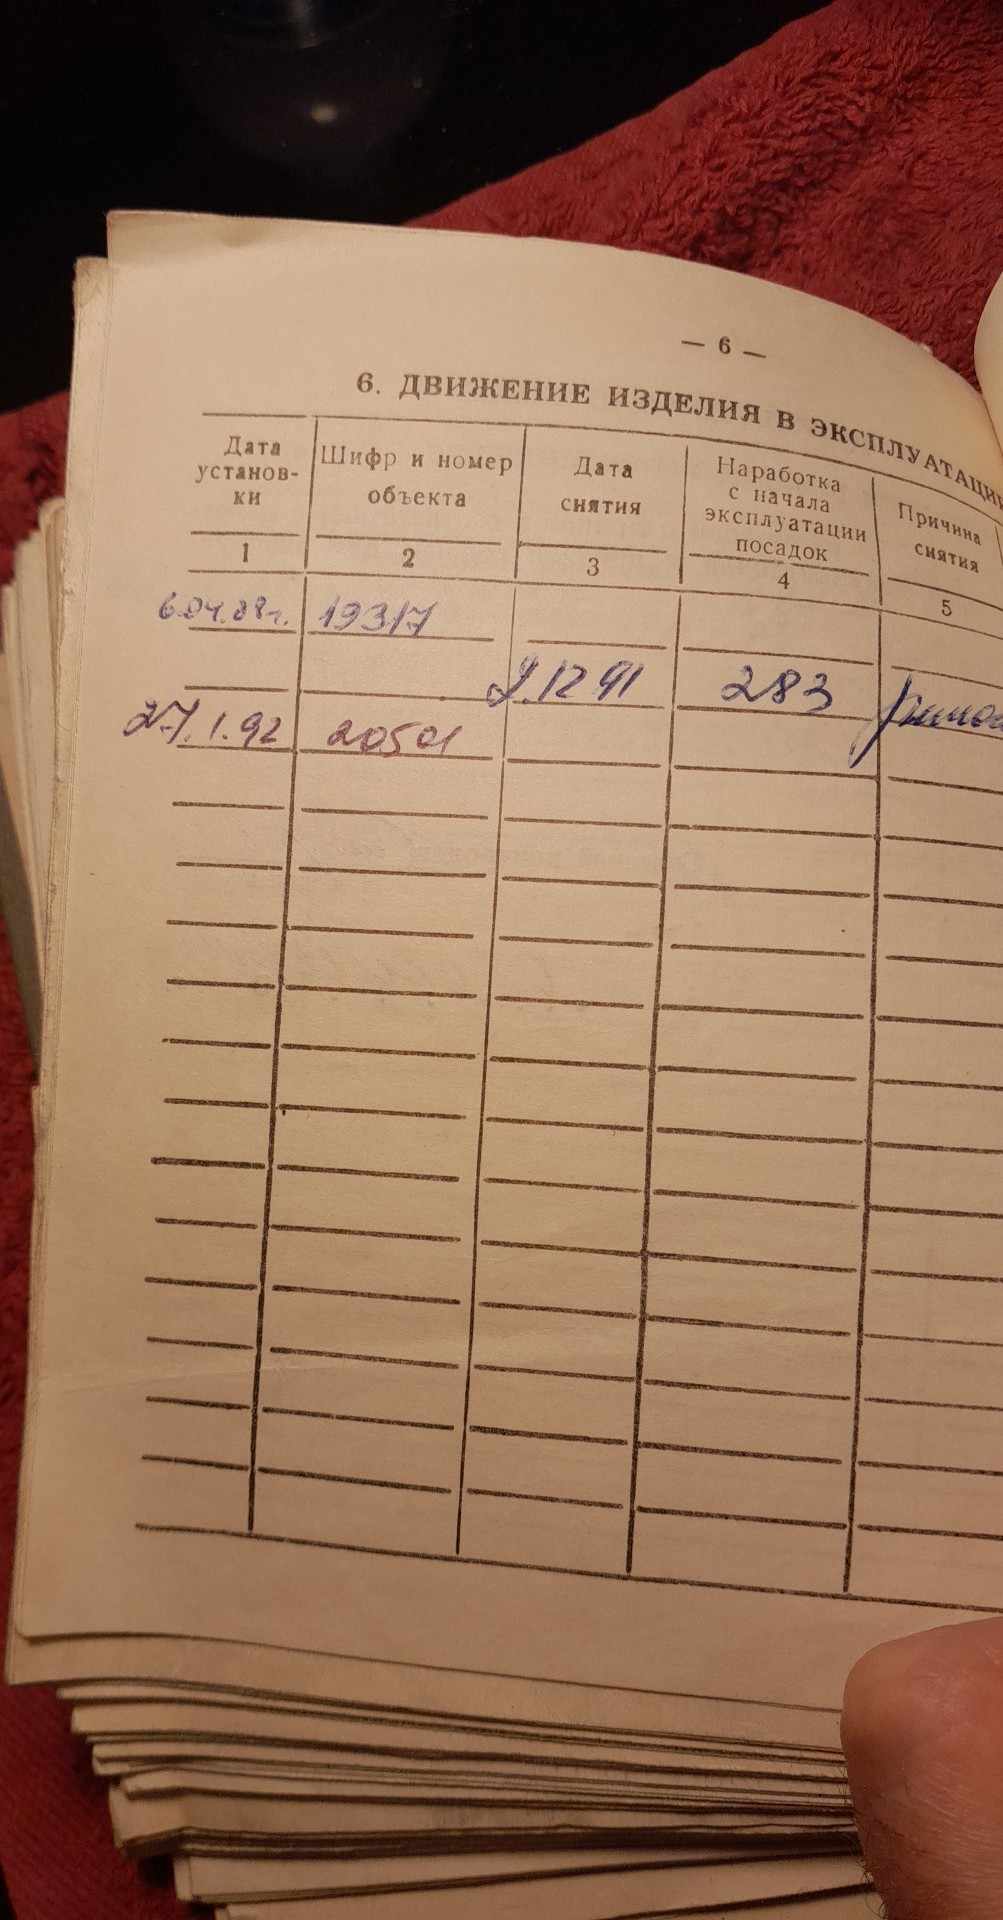 — 6 —
6. ДВИЖЕНИЕ ИЗДЕЛИЯ В ЭКСПЛУАТАЦИИ
Дата установ-ки
Шифр и номер объекта
Дата снятия
Наработка с начала эксплуатации посадок
Причина снятия
1 2 3 4 5
19317
12 91 283
27.1.92 20501